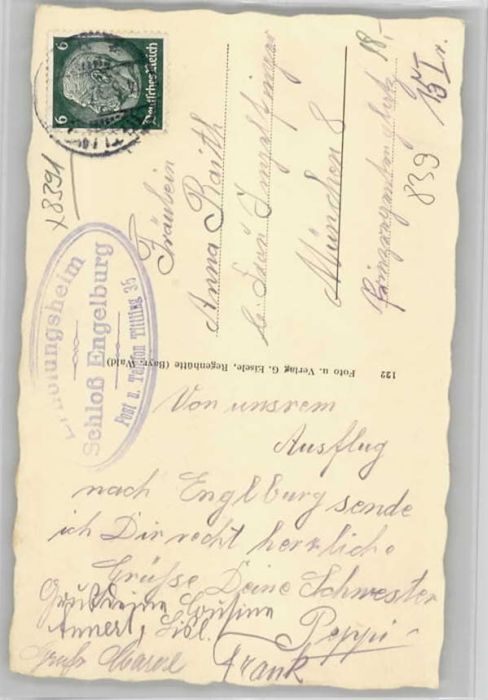 6 Deutsches Reich 6
x8391
Erholungsheim
Schloß Engelburg
Post u. Telefon Tittling 35
Fräulein
Anna Raith
bei Frau
München 8
18.
839
15 I r.
122 Foto u. Verlag G. Eisele, Regenhütte (Bayr. Wald)
Von unsrem
Ausflug
nach Englburg sende
ich Dir recht herzliche
Grüße Deine Schwester
Peppi
Gruß deine Cousine
Annerl, Lisl.
Gruß
Frank